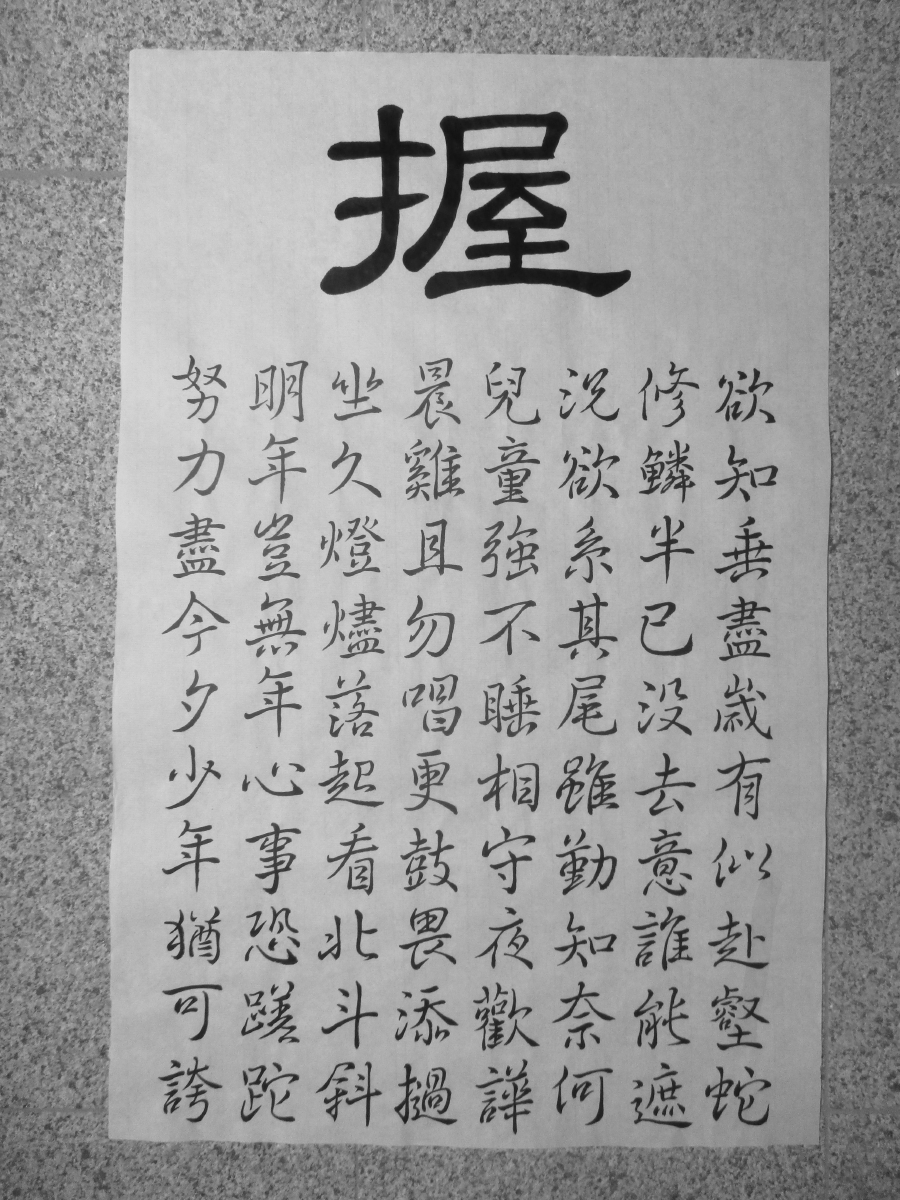 握
欲知垂盡歲有似赴壑蛇
修鱗半已没去意誰能遮
況欲系其尾雖勤知奈何
兒童強不睡相守夜歡譁
晨雞且勿唱更鼓畏添撾
坐久燈燼落起看北斗斜
明年豈無年心事恐蹉跎
努力盡今夕少年猶可誇